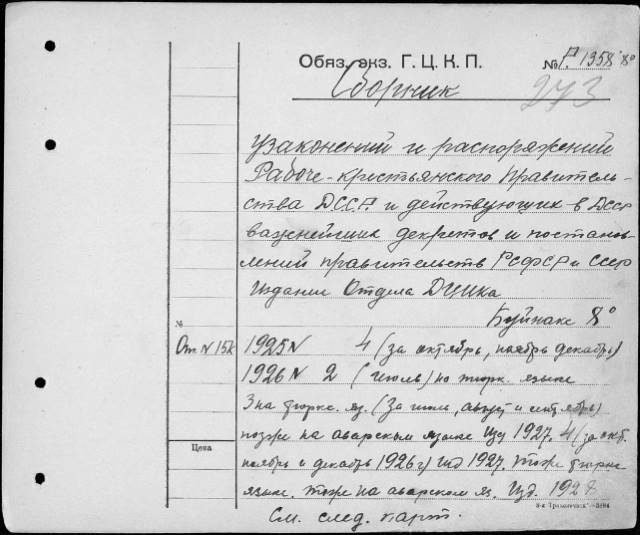 Обяз. экз. Г. Ц. К. П. № Р 1358 8°
Сборник 273
узаконений и распоряжений
Рабоче-крестьянского Правитель-
ства ДССР и действующих в ДССР
важнейших декретов и постанов-
лений правительств РСФСР и СССР
Издание Отдела ДЦИКа
Буйнакс 8°
№
От N 15% 1925 N 4 (за октябрь, ноябрь декабрь)
1926 N 2 (июль) на тюрк. языке
3 на тюркс. яз. (За июль, август и сентябрь)
тоже на аварском языке Изд 1927. 4 (за окт.
Цена
ноябрь и декабрь 1926 г) изд 1927. тоже тюркс
языке. тоже на аварском яз. Изд. 1928
См. след. карт.